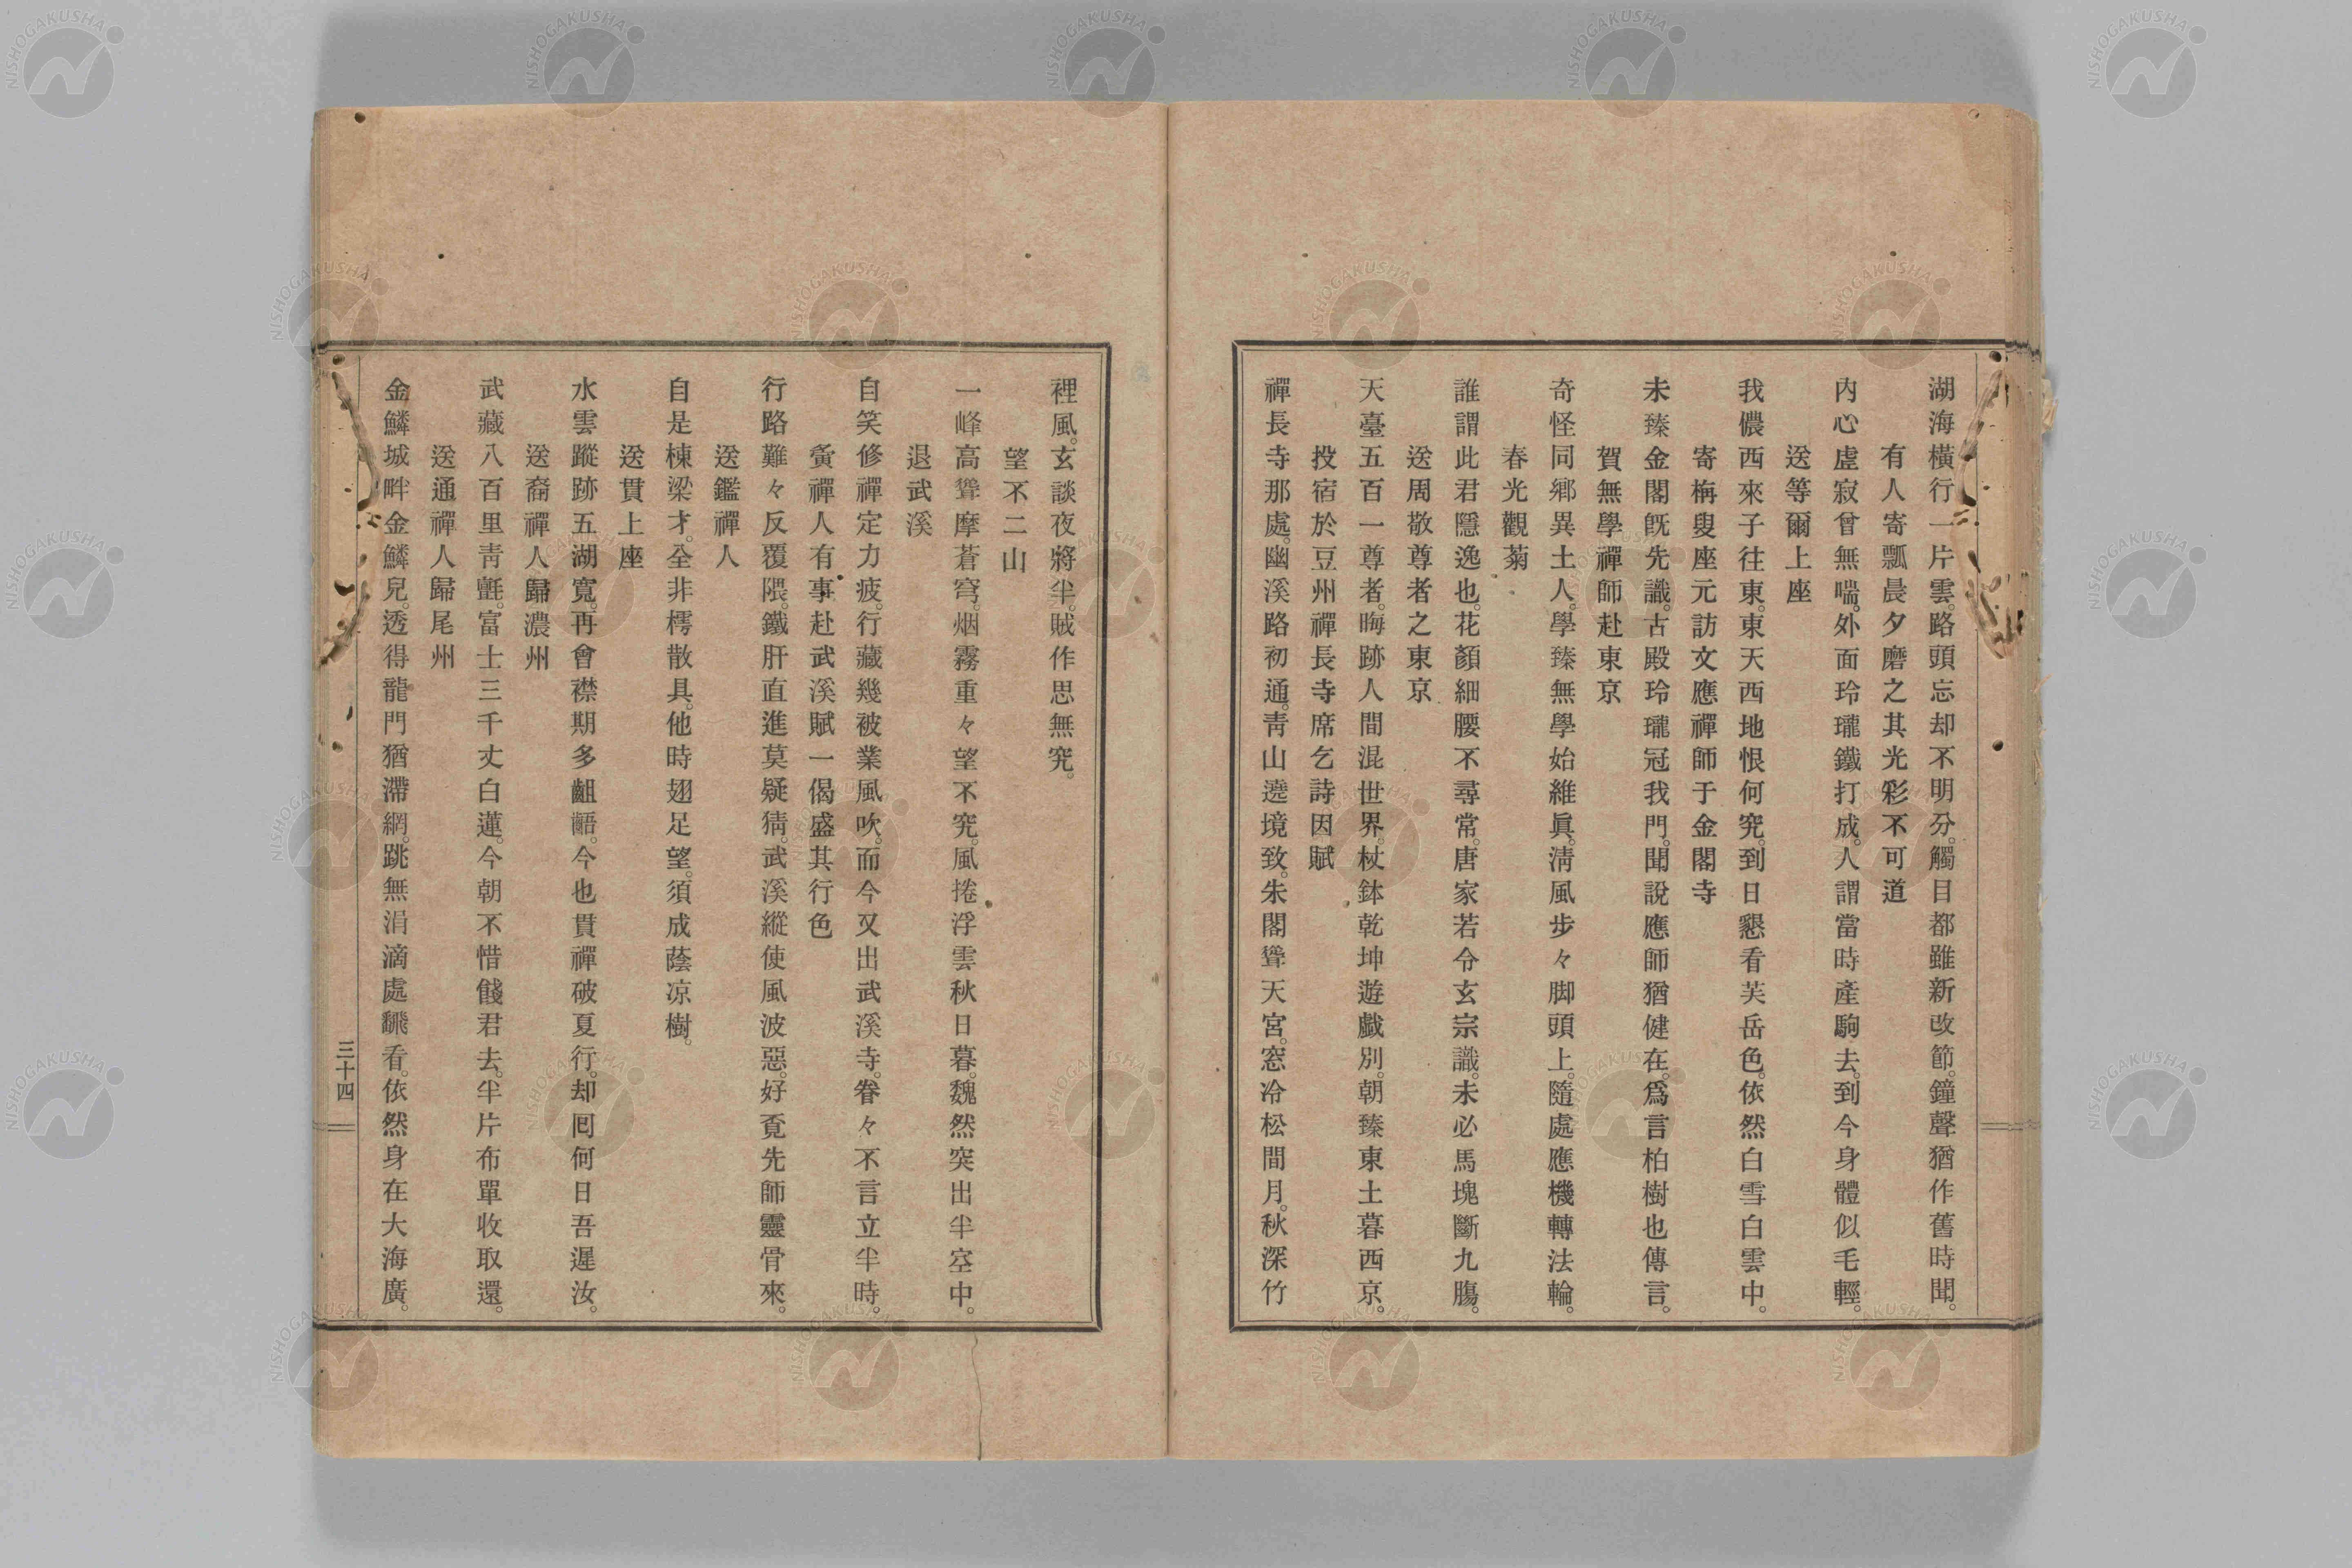 湖海橫行一片雲。路頭忘却不明分。觸目都雖新改節。鐘聲猶作舊時聞。
有人寄瓢晨夕磨之其光彩不可道
内心虛寂曾無喘。外面玲瓏鐵打成。人謂當時產駒去。到今身體似毛輕。
送等爾上座
我儂西來子往東。東天西地恨何究。到日懇看芙岳色。依然白雪白雲中。
寄梅叟座元訪文應禪師于金閣寺
未臻金閣旣先識。古殿玲瓏冠我門。聞說應師猶健在。爲言柏樹也傳言。
賀無學禪師赴東京
奇怪同鄉異土人。學臻無學始維眞。淸風步々脚頭上。隨處應機轉法輪。
春光觀菊
誰謂此君隱逸也。花顏細腰不尋常。唐家若令玄宗識。未必馬塊斷九膓。
送周敬尊者之東京
天臺五百一尊者。晦跡人間混世界。杖鉢乾坤遊戲別。朝臻東土暮西京。
投宿於豆州禪長寺席乞詩因賦
禪長寺那處。幽溪路初通。靑山遶境致。朱閣聳天宮。窓冷松間月。秋深竹
裡風。玄談夜將半。賊作思無究。
望不二山
一峰高聳摩蒼穹。烟霧重々望不究。風捲浮雲秋日暮。魏然突出半空中。
退武溪
自笑修禪定力疲。行藏幾被業風吹。而今又出武溪寺。眷々不言立半時。
黌禪人有事赴武溪賦一偈盛其行色
行路難々反覆隈。鐵肝直進莫疑猜。武溪縱使風波惡。好覔先師靈骨來。
送鑑禪人
自是棟梁才。全非樗散具。他時翅足望。須成蔭凉樹。
送貫上座
水雲蹤跡五湖寬。再會襟期多齟齬。今也貫禪破夏行。却囘何日吾遲汝。
送裔禪人歸濃州
武藏八百里靑氈。富士三千丈白蓮。今朝不惜餞君去。半片布單收取還。
送通禪人歸尾州
金鱗城畔金鱗兒。透得龍門猶滯網。跳無涓滴處飜看。依然身在大海廣。
三十四
NISHOGAKUSHA